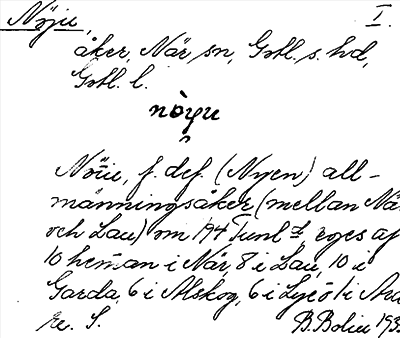 Nöju, I.
åker, När sn, Gotl. s. hd,
Gotl. l.
nòyu
Nöue, f. def. (Nyen) all-
männingsåker (mellan När
och Lau) om 194 Tunl eges af
10 heman i När, 8 i Lau, 10 i
Garda, 6 i Alskog, 6 i Lye ö i
re. S. B. Bolin 193